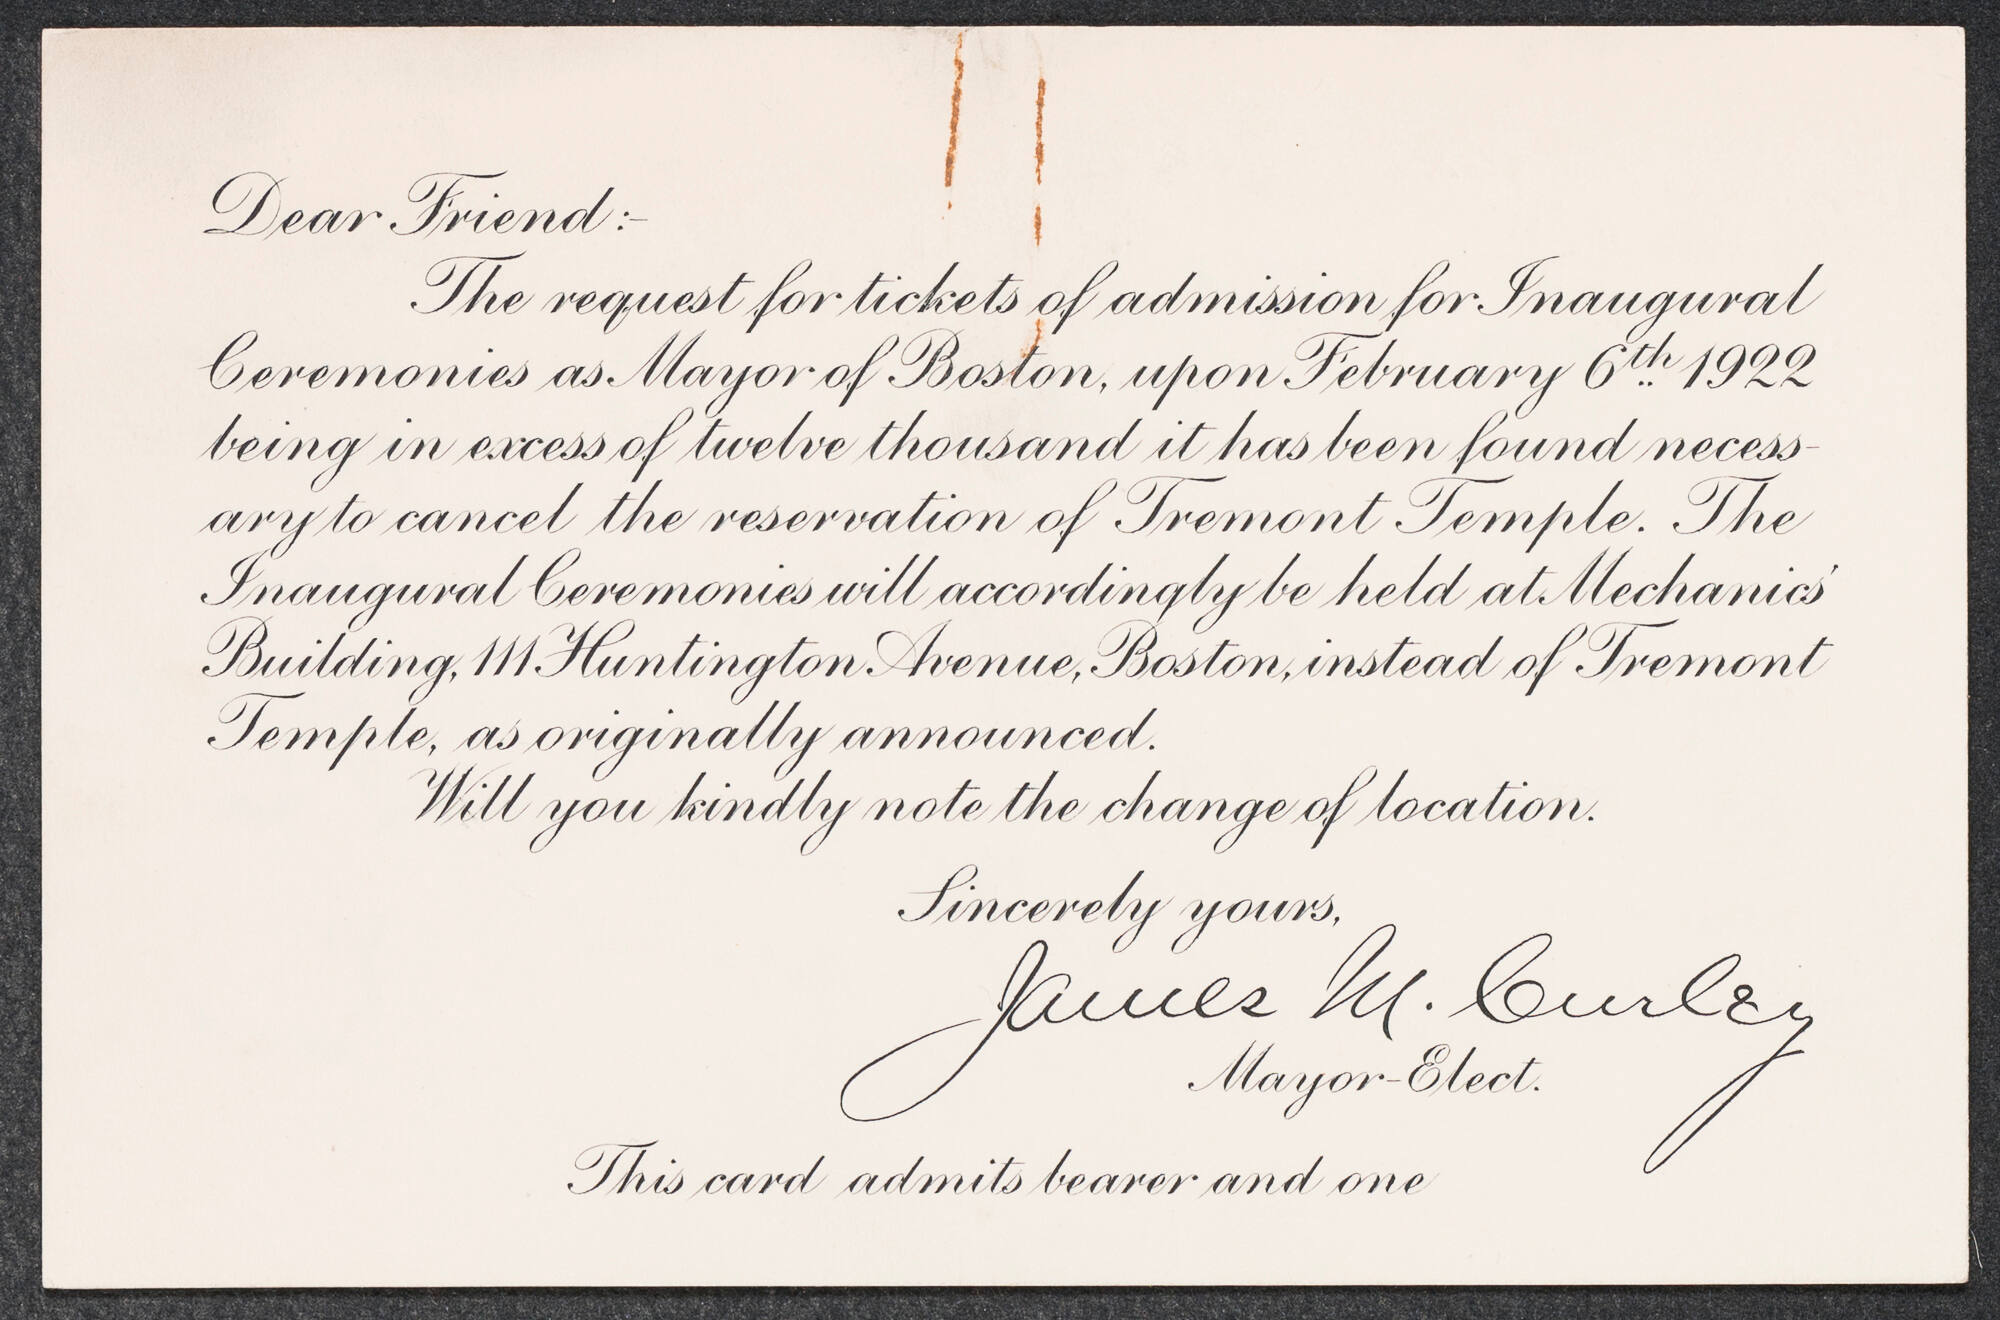 Dear Friend:-
The request for tickets of admission for Inaugural
Ceremonies as Mayor of Boston, upon February 6th 1922
being in excess of twelve thousand it has been found necess-
ary to cancel the reservation of Tremont Temple. The
Inaugural Ceremonies will accordingly be held at Mechanics'
Building, 111 Huntington Avenue, Boston, instead of Tremont
Temple, as originally announced.
Will you kindly note the change of location.
Sincerely yours,
James M. Curley
Mayor-Elect.
This card admits bearer and one